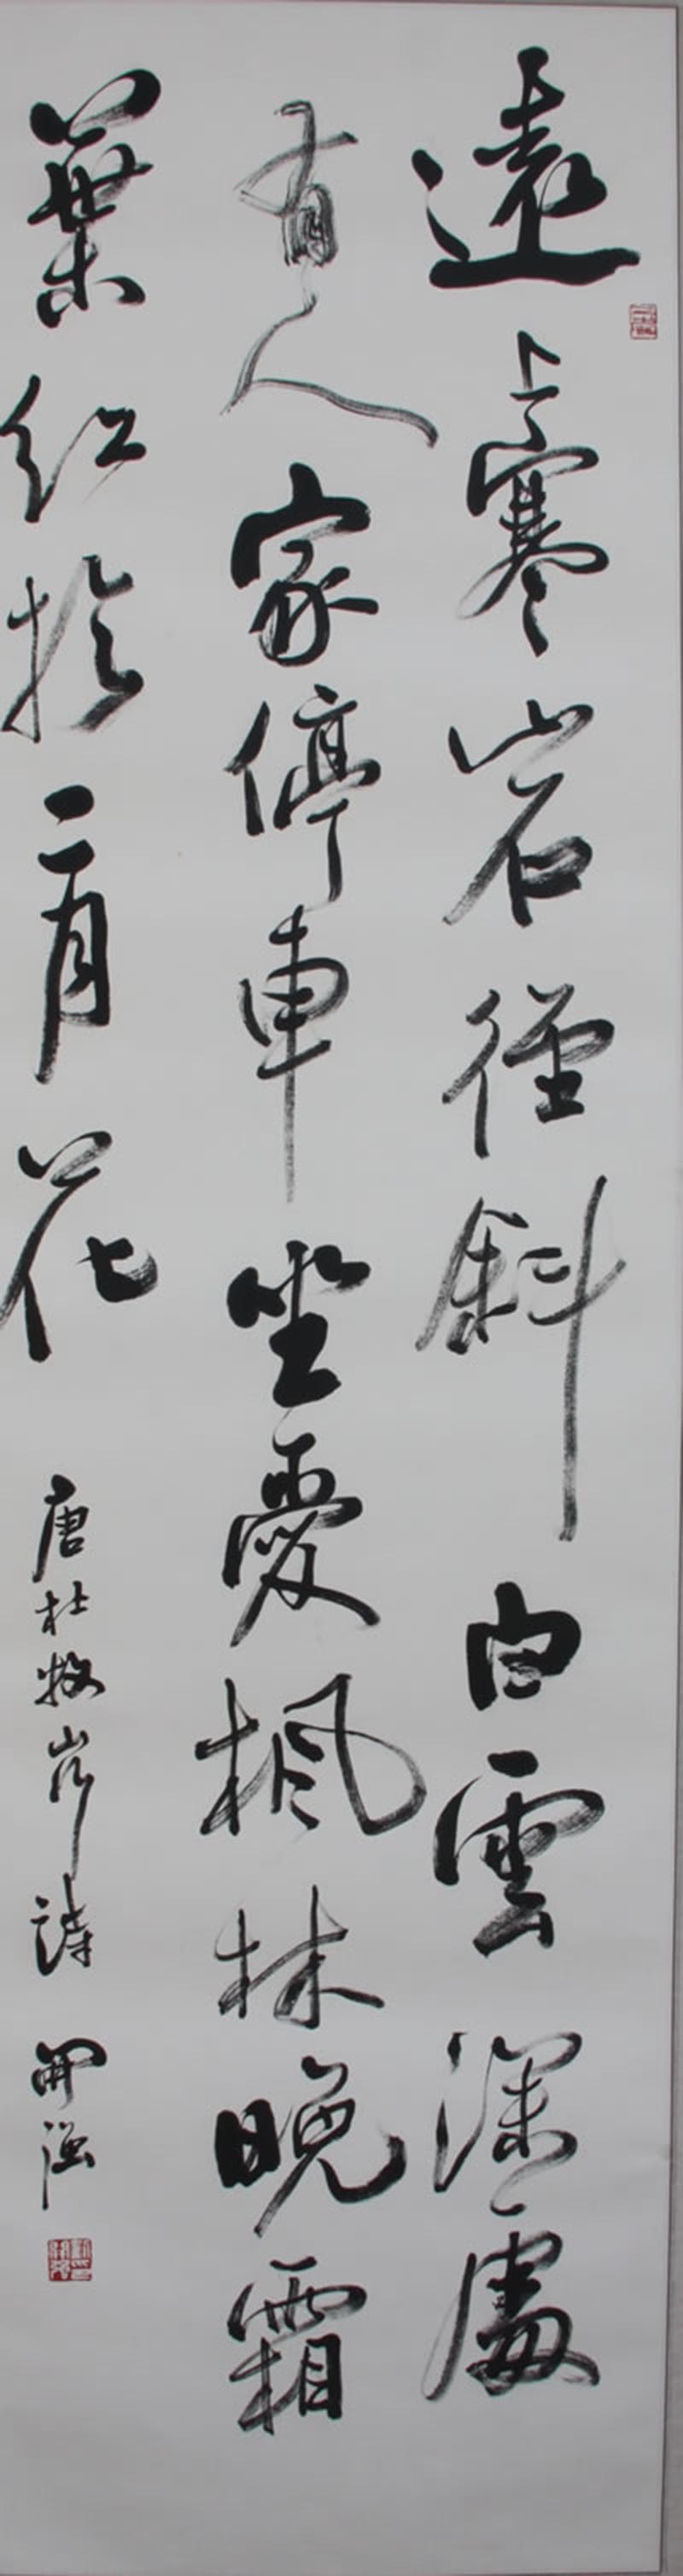 遠上寒山石徑斜白雲深處
有人家停車坐愛楓林晚霜
葉紅於二月花 唐杜牧山行詩 開強